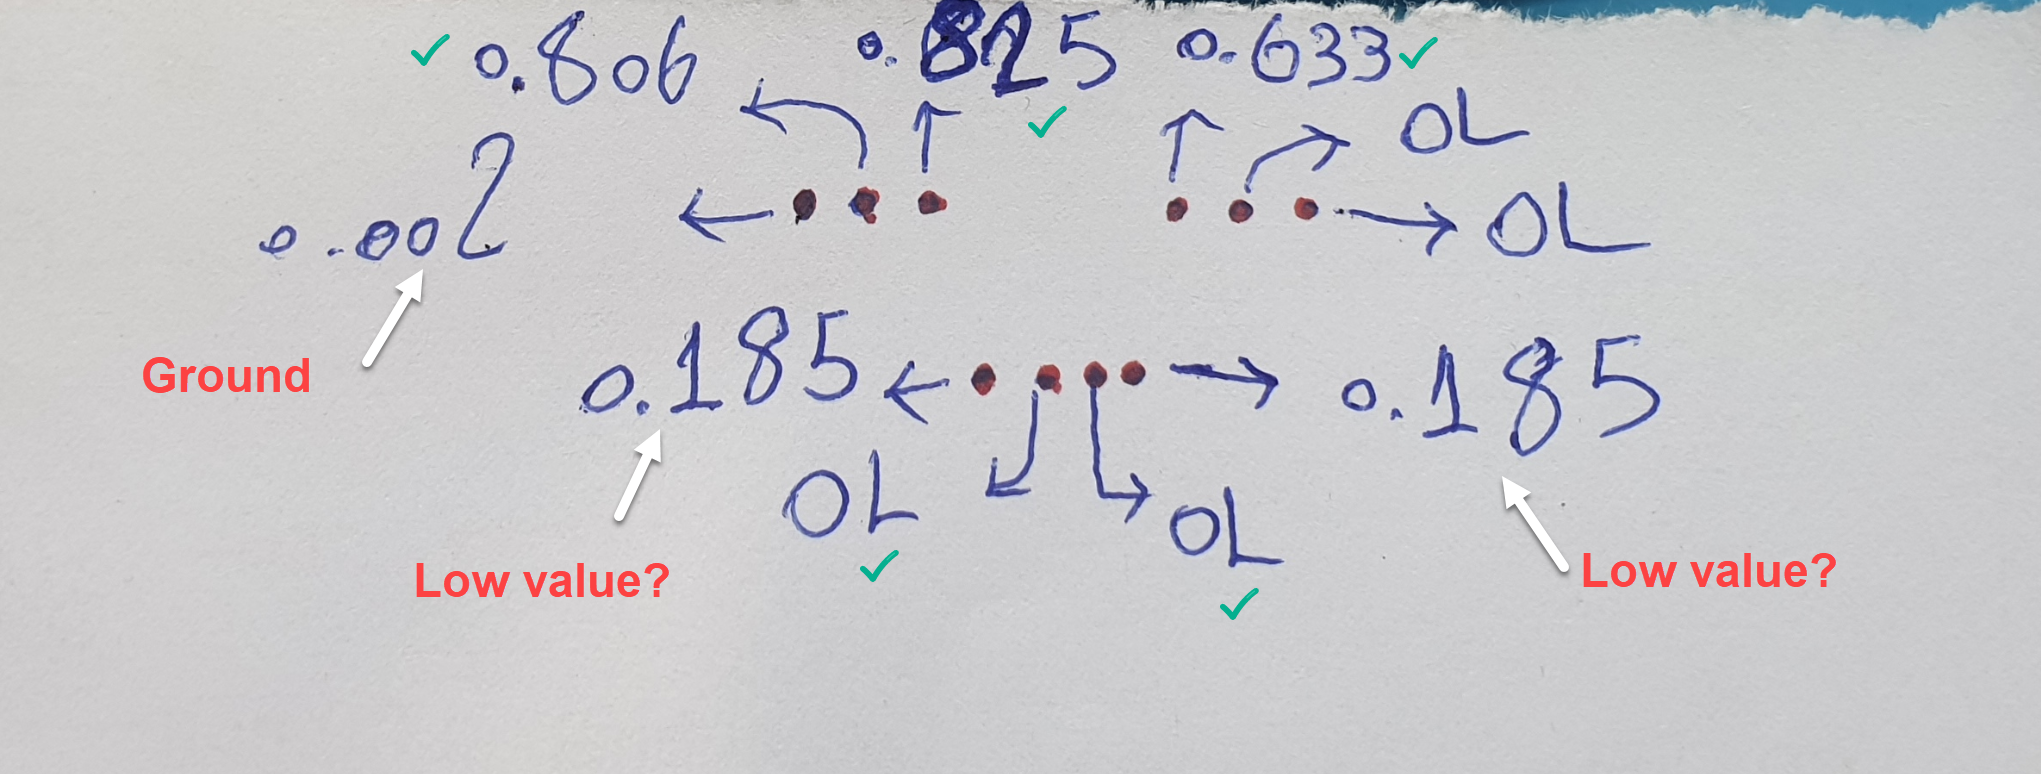 0.806 0.825 0.633
OL
0.002 OL
Ground
0.185 0.185
OL OL
Low value? Low value?